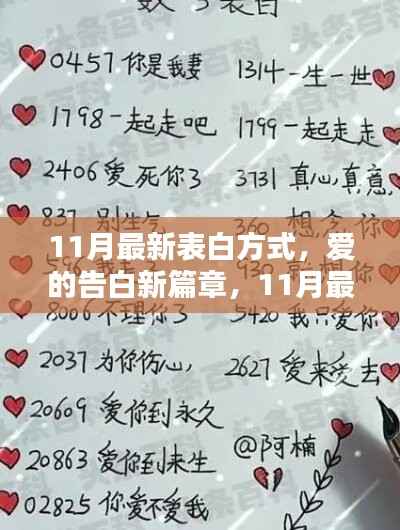 数字表白
0457你是我妻
1314一生一世
1798一起走吧
1799一起走走
2406爱死你3
3731真心真意
837别生气
360想念你
11月最新表白方式，爱
的告白新篇章，11月最
8006不理你了
5420只爱你
2037为你伤心
2627爱来爱去
20609爱你到永久
@阿楠
20863爱你到来生
02825你爱不爱我